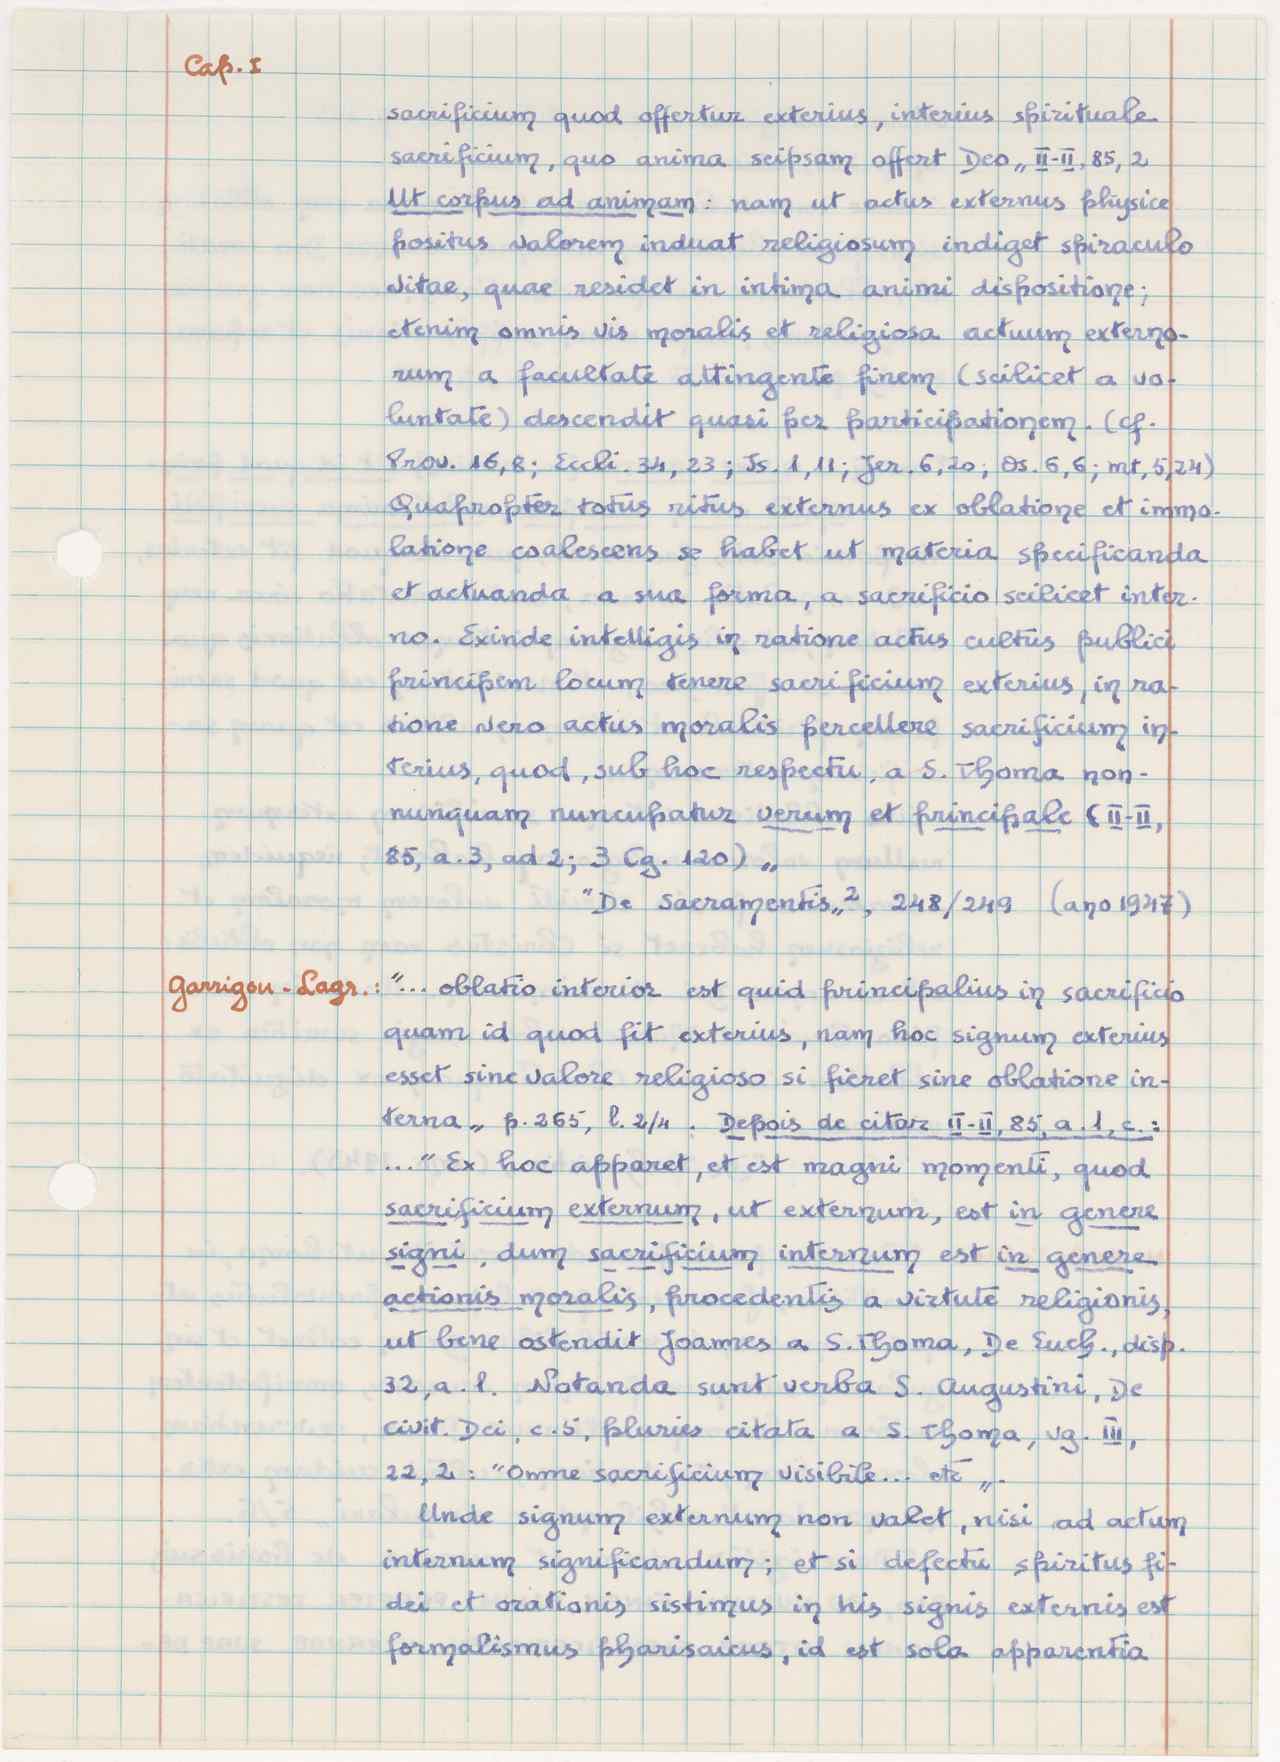 Cap. I
sacrificium quod offertur exterius, interius spirituale
sacrificium, quo anima seipsam offert Deo„ II-II, 85, 2
Ut corpus ad animam: nam ut actus externus physice
positus valorem induat religiosum indiget spiraculo
vitae, quae residet in intima animi dispositione;
etenim omnis vis moralis et religiosa actuum externo-
rum a facultate attingente finem (scilicet a vo-
luntate) descendit quasi per participationem. (cf.
Prov. 16,8; Eccli. 34, 23; Is. 1,11; Jer. 6,20; Os. 6,6; mt, 5,24)
Quapropter totus ritus externus ex oblatione et immo-
latione coalescens se habet ut materia specificanda
et actuanda a sua forma, a sacrificio scilicet inter-
no. Exinde intelligis in ratione actus cultūs publici
principem locum tenere sacrificium exterius, in ra-
tione vero actus moralis percellere sacrificium in-
terius, quod, sub hoc respectu, a S. Thoma non-
nunquam nuncupatur verum et principale (II-II,
85, a. 3, ad 2; 3 Cg. 120) „
"De Sacramentis„ 2, 248/249 (ano 1947)
Garrigou-Lagr.: "... oblatio interior est quid principalius in sacrificio
quam id quod fit exterius, nam hoc signum exterius
esset sine valore religioso si fieret sine oblatione in-
terna„ p. 265, l. 2/4. Depois de citar II-II, 85, a. 1, c.:
..." Ex hoc apparet, et est magni momenti, quod
sacrificium externum, ut externum, est in genere
signi, dum sacrificium internum est in genere
actionis moralis, procedentis a virtute religionis,
ut bene ostendit Joannes a S. Thoma, De Euch., disp.
32, a. 1. Notanda sunt verba S. Augustini, De
civit. Dei, c. 5, pluries citata a S. Thoma, vg. III,
22, 2: "Omne sacrificium visibile... etc„.
Unde signum externum non valet, nisi ad actum
internum significandum; et si defectu spiritus fi-
dei et orationis sistimus in his signis externis est
formalismus pharisaicus, id est sola apparentia